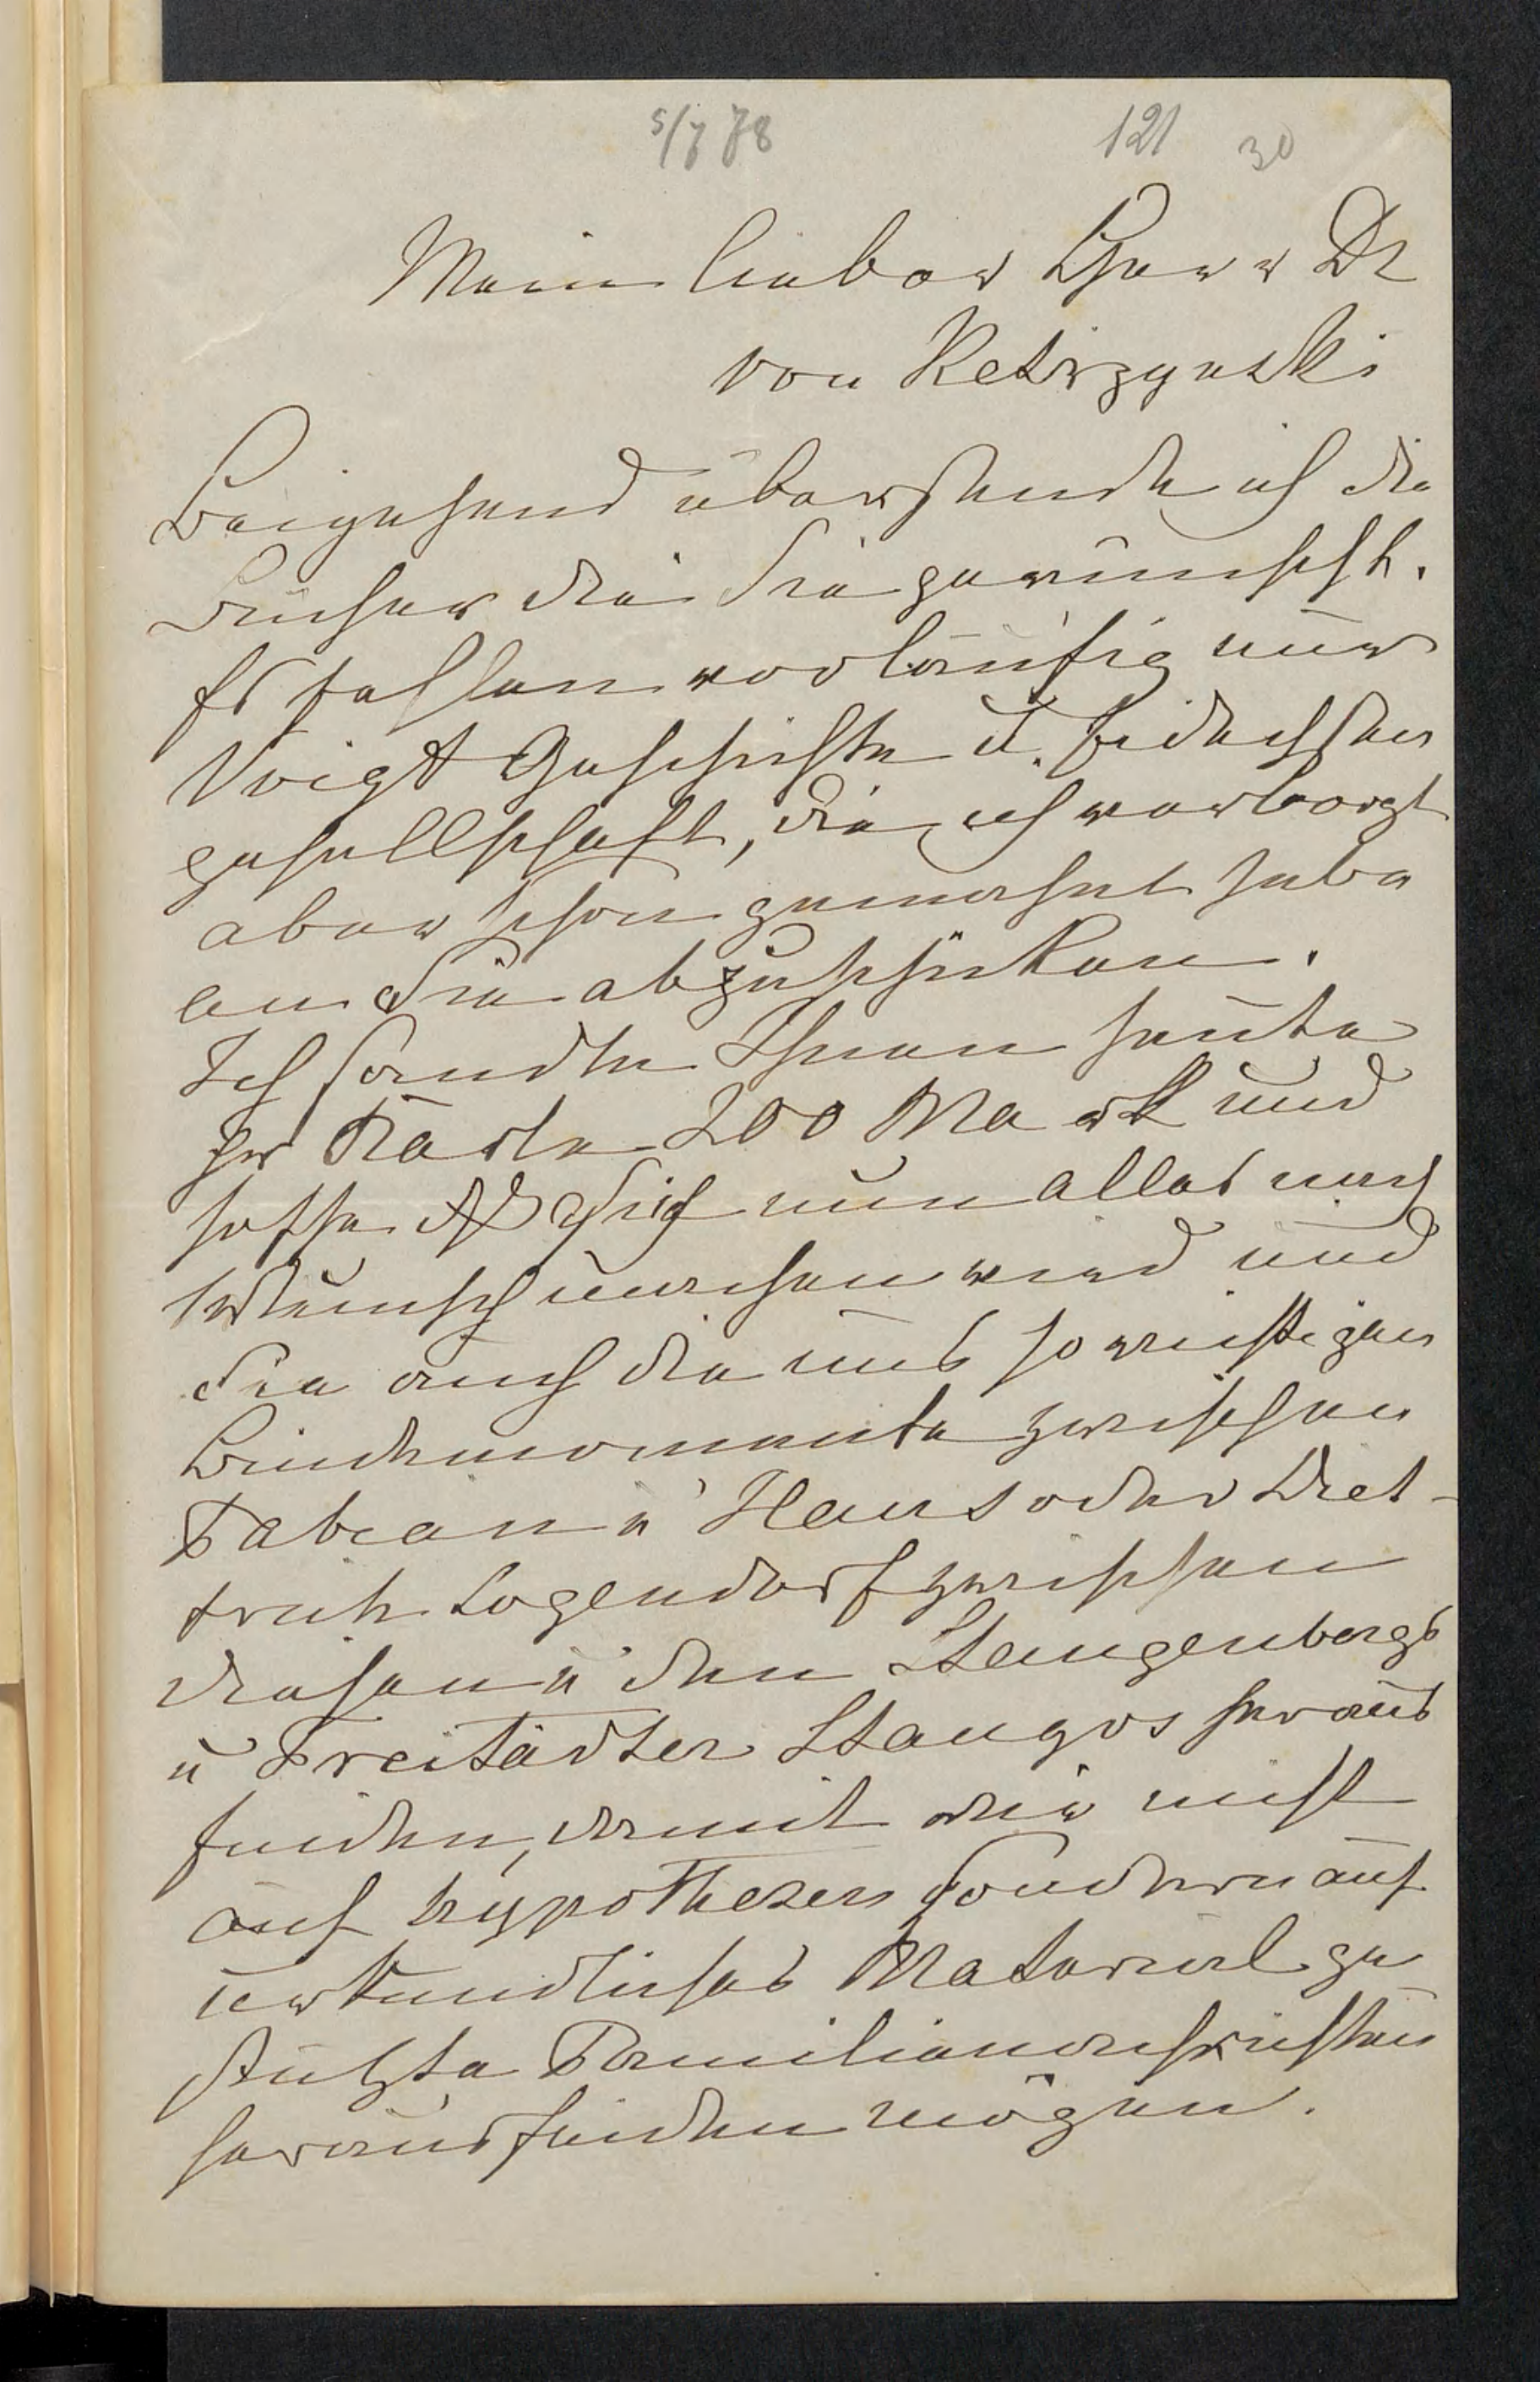 5/7 78 121 30
Mein lieber Herr Dr
von Ketrzynski
Beigehend übersende ich die
Bücher die Sie gewünscht.
Es fehlen vorläufig nur
Voigt Geschichte u. Eidechsen
gesellschaft, die ich verborgt
aber schon gemahnt habe
an Sie abzuschicken.
Ich sandte Ihnen heute
per Karte 200 Mark und
hoffe daß sich nun alles nach
Wunsch machen wird und
Sie auch die uns so wichtigen
Bindemomente zwischen
Fabian u Hans oder Diet-
trich Logendorf zwischen
diesen u den Stangenbergs
u Freistädter Stangos heraus
finden, damit wir nicht
auf hypothesen sondern auf
urkundliches Material ge
stützte Familiennachrichten
herausfinden mögen.